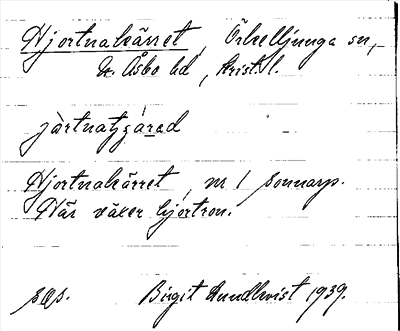 Hjortnakärret, Örkelljunga sn,
N. Åsbo hd, Krist. l.
Hjortnakärret, m 1 Sonnarp.
Där växer hjortron.
sos. Birgit Lundkvist 1939.